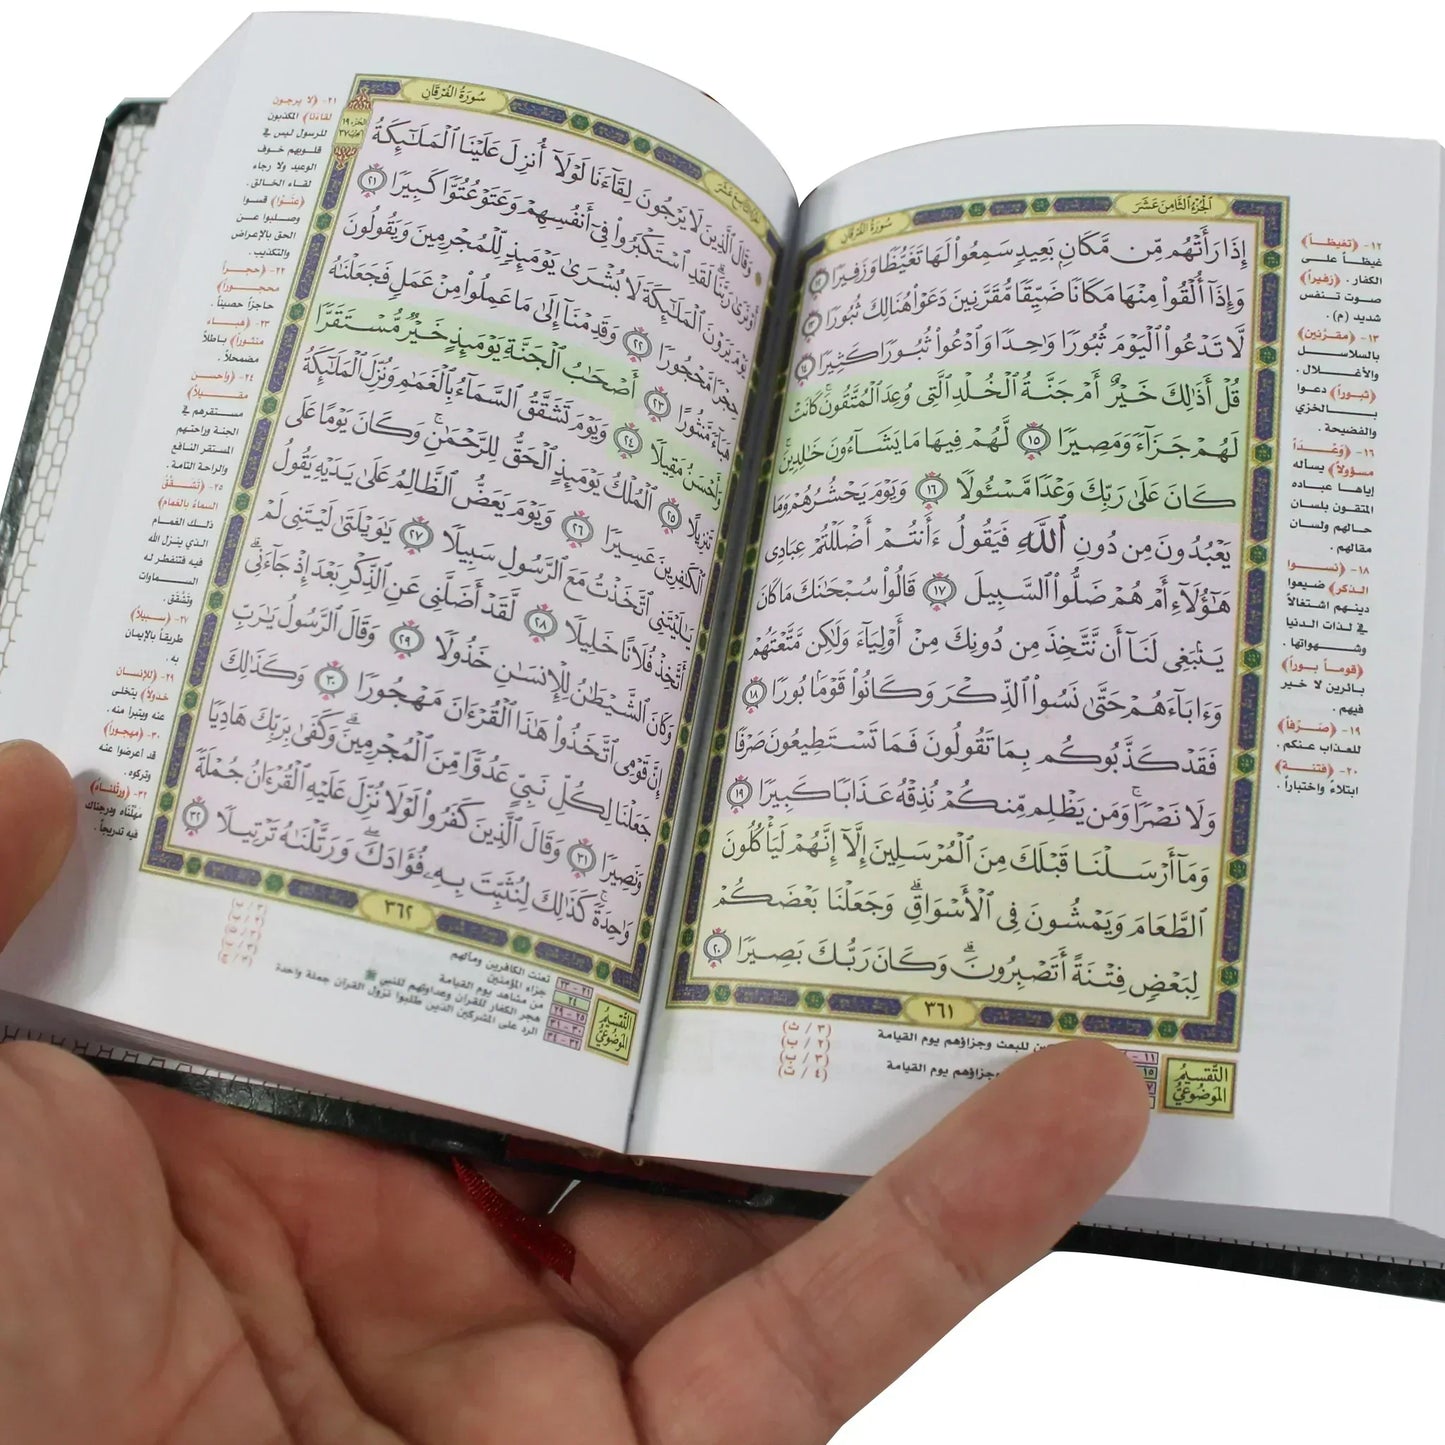 الجزء الثامن عشر
سورة الفرقان
إِذَا رَأَتْهُم مِّن مَّكَانٍ بَعِيدٍ سَمِعُوا۟ لَهَا تَغَيُّظًا وَزَفِيرًا ١٢
وَإِذَآ أُلْقُوا۟ مِنْهَا مَكَانًا ضَيِّقًا مُّقَرَّنِينَ دَعَوْا۟ هُنَالِكَ ثُبُورًا ١٣
لَّا تَدْعُوا۟ ٱلْيَوْمَ ثُبُورًا وَٰحِدًا وَٱدْعُوا۟ ثُبُورًا كَثِيرًا ١٤
قُلْ أَذَٰلِكَ خَيْرٌ أَمْ جَنَّةُ ٱلْخُلْدِ ٱلَّتِى وُعِدَ ٱلْمُتَّقُونَ ۚ كَانَتْ
لَهُمْ جَزَآءً وَمَصِيرًا ١٥ لَّهُمْ فِيهَا مَا يَشَآءُونَ خَٰلِدِينَ ۚ
كَانَ عَلَىٰ رَبِّكَ وَعْدًا مَّسْـُٔولًا ١٦ وَيَوْمَ يَحْشُرُهُمْ وَمَا
يَعْبُدُونَ مِن دُونِ ٱللَّهِ فَيَقُولُ ءَأَنتُمْ أَضْلَلْتُمْ عِبَادِى
هَٰٓؤُلَآءِ أَمْ هُمْ ضَلُّوا۟ ٱلسَّبِيلَ ١٧ قَالُوا۟ سُبْحَٰنَكَ مَا كَانَ
يَنۢبَغِى لَنَآ أَن نَّتَّخِذَ مِن دُونِكَ مِنْ أَوْلِيَآءَ وَلَٰكِن مَّتَّعْتَهُمْ
وَءَابَآءَهُمْ حَتَّىٰ نَسُوا۟ ٱلذِّكْرَ وَكَانُوا۟ قَوْمًۢا بُورًا ١٨
فَقَدْ كَذَّبُوكُم بِمَا تَقُولُونَ فَمَا تَسْتَطِيعُونَ صَرْفًا
وَلَا نَصْرًا ۚ وَمَن يَظْلِم مِّنكُمْ نُذِقْهُ عَذَابًا كَبِيرًا ١٩
وَمَآ أَرْسَلْنَا قَبْلَكَ مِنَ ٱلْمُرْسَلِينَ إِلَّآ إِنَّهُمْ لَيَأْكُلُونَ
ٱلطَّعَامَ وَيَمْشُونَ فِى ٱلْأَسْوَاقِ ۗ وَجَعَلْنَا بَعْضَكُمْ
لِبَعْضٍ فِتْنَةً أَتَصْبِرُونَ ۗ وَكَانَ رَبُّكَ بَصِيرًا ٢٠
٣٦١
١٢- ﴿تغيظاً﴾
غيظاً على
الكفار .
﴿زفيراً﴾
صوت تنفس
شديد (م) .
١٣- ﴿مقرنين﴾
بالسلاسل
والأغلال .
﴿ثبوراً﴾ دعوا
بالخزي
والفضيحة .
١٦- ﴿وعداً
مسؤولاً﴾ يسأله
إياها عباده
المتقون بلسان
حالهم ولسان
مقالهم .
١٨- ﴿نسوا
الذكر﴾ ضيعوا
دينهم اشتغالاً
في لذات الدنيا
وشهواتها .
﴿قوماً بوراً﴾
بائرين لا خير
فيهم .
١٩- ﴿صرفاً﴾
للعذاب عنكم .
٢٠- ﴿فتنة﴾
ابتلاءً واختباراً .
التقسيم
الموضوعي
للبعث وجزاؤهم يوم القيامة
وجزاؤهم يوم القيامة
(٣ / ث)
(٢ / ب)
(٣ / ب)
(٤ / ث)
سورة الفرقان
الجزء ١٩
الحزب ٣٧
وَقَالَ ٱلَّذِينَ لَا يَرْجُونَ لِقَآءَنَا لَوْلَآ أُنزِلَ عَلَيْنَا ٱلْمَلَٰٓئِكَةُ
أَوْ نَرَىٰ رَبَّنَا ۗ لَقَدِ ٱسْتَكْبَرُوا۟ فِىٓ أَنفُسِهِمْ وَعَتَوْ عُتُوًّا كَبِيرًا ٢١
يَوْمَ يَرَوْنَ ٱلْمَلَٰٓئِكَةَ لَا بُشْرَىٰ يَوْمَئِذٍ لِّلْمُجْرِمِينَ وَيَقُولُونَ
حِجْرًا مَّحْجُورًا ٢٢ وَقَدِمْنَآ إِلَىٰ مَا عَمِلُوا۟ مِنْ عَمَلٍ فَجَعَلْنَٰهُ
هَبَآءً مَّنثُورًا ٢٣ أَصْحَٰبُ ٱلْجَنَّةِ يَوْمَئِذٍ خَيْرٌ مُّسْتَقَرًّا
وَأَحْسَنُ مَقِيلًا ٢٤ وَيَوْمَ تَشَقَّقُ ٱلسَّمَآءُ بِٱلْغَمَٰمِ وَنُزِّلَ ٱلْمَلَٰٓئِكَةُ
تَنزِيلًا ٢٥ ٱلْمُلْكُ يَوْمَئِذٍ ٱلْحَقُّ لِلرَّحْمَٰنِ ۚ وَكَانَ يَوْمًا عَلَى
ٱلْكَٰفِرِينَ عَسِيرًا ٢٦ وَيَوْمَ يَعَضُّ ٱلظَّالِمُ عَلَىٰ يَدَيْهِ يَقُولُ
يَٰلَيْتَنِى ٱتَّخَذْتُ مَعَ ٱلرَّسُولِ سَبِيلًا ٢٧ يَٰوَيْلَتَىٰ لَيْتَنِى لَمْ
أَتَّخِذْ فُلَانًا خَلِيلًا ٢٨ لَّقَدْ أَضَلَّنِى عَنِ ٱلذِّكْرِ بَعْدَ إِذْ جَآءَنِى ۗ
وَكَانَ ٱلشَّيْطَٰنُ لِلْإِنسَٰنِ خَذُولًا ٢٩ وَقَالَ ٱلرَّسُولُ يَٰرَبِّ
إِنَّ قَوْمِى ٱتَّخَذُوا۟ هَٰذَا ٱلْقُرْءَانَ مَهْجُورًا ٣٠ وَكَذَٰلِكَ
جَعَلْنَا لِكُلِّ نَبِىٍّ عَدُوًّا مِّنَ ٱلْمُجْرِمِينَ ۗ وَكَفَىٰ بِرَبِّكَ هَادِيًا
وَنَصِيرًا ٣١ وَقَالَ ٱلَّذِينَ كَفَرُوا۟ لَوْلَا نُزِّلَ عَلَيْهِ ٱلْقُرْءَانُ جُمْلَةً
وَٰحِدَةً ۚ كَذَٰلِكَ لِنُثَبِّتَ بِهِۦ فُؤَادَكَ ۖ وَرَتَّلْنَٰهُ تَرْتِيلًا ٣٢
٣٦٢
٢١- ﴿لا يرجون
لقاءنا﴾ المكذبون
للرسول ليس في
قلوبهم خوف
الوعيد ولا رجاء
لقاء الخالق .
﴿عتوا﴾ قسوا
وصلبوا عن
الحق بالإعراض
والتكذيب .
٢٢- ﴿حجراً
محجوراً﴾
حاجزاً حصيناً .
٢٣- ﴿هباء
منثوراً﴾ باطلاً
مضمحلاً .
٢٤- ﴿وأحسن
مقيلاً﴾
مستقرهم في
الجنة وراحتهم
المستقر النافع
والراحة التامة .
٢٥- ﴿تشقق
السماء بالغمام﴾
ذلك الغمام
الذي ينزل الله
فيه فتنفطر له
السماوات
وتشقق .
٢٧- ﴿سبيلاً﴾
طريقاً بالإيمان
به .
٢٩- ﴿للإنسان
خذولاً﴾ يتخلى
عنه ويتبرأ منه .
٣٠- ﴿مهجوراً﴾
قد أعرضوا عنه
وتركوه .
٣٢- ﴿ورتلناه﴾
مهّلناه ودرجناك
فيه تدريجاً .
التقسيم
الموضوعي
٢١ - ٢٣ تعنت الكافرين ومآلهم
٢٤ جزاء المؤمنين
٢٥ - ٢٩ من مشاهد يوم القيامة
٣٠ - ٣١ هجر الكفار للقرآن وعداوتهم للنبي ﷺ
٣٢ - ٣٤ الرد على المشركين الذين طلبوا نزول القرآن جملة واحدة